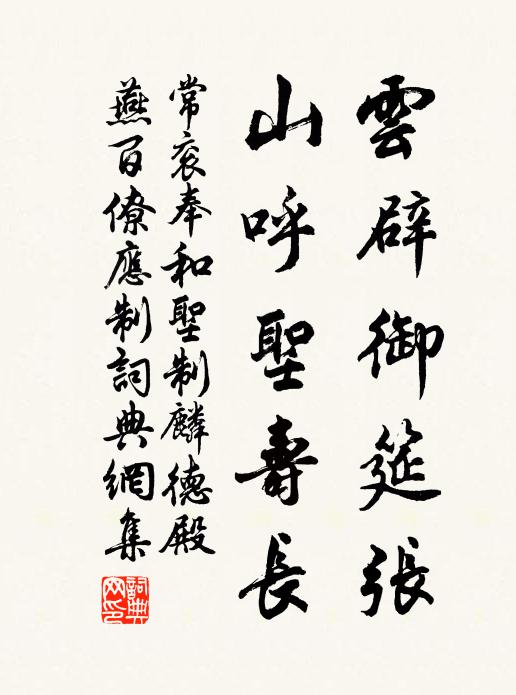 雲辟御筵張
山呼聖壽長
常袞奉和聖制麟德殿
燕百僚應制詞典網集
詞典网印